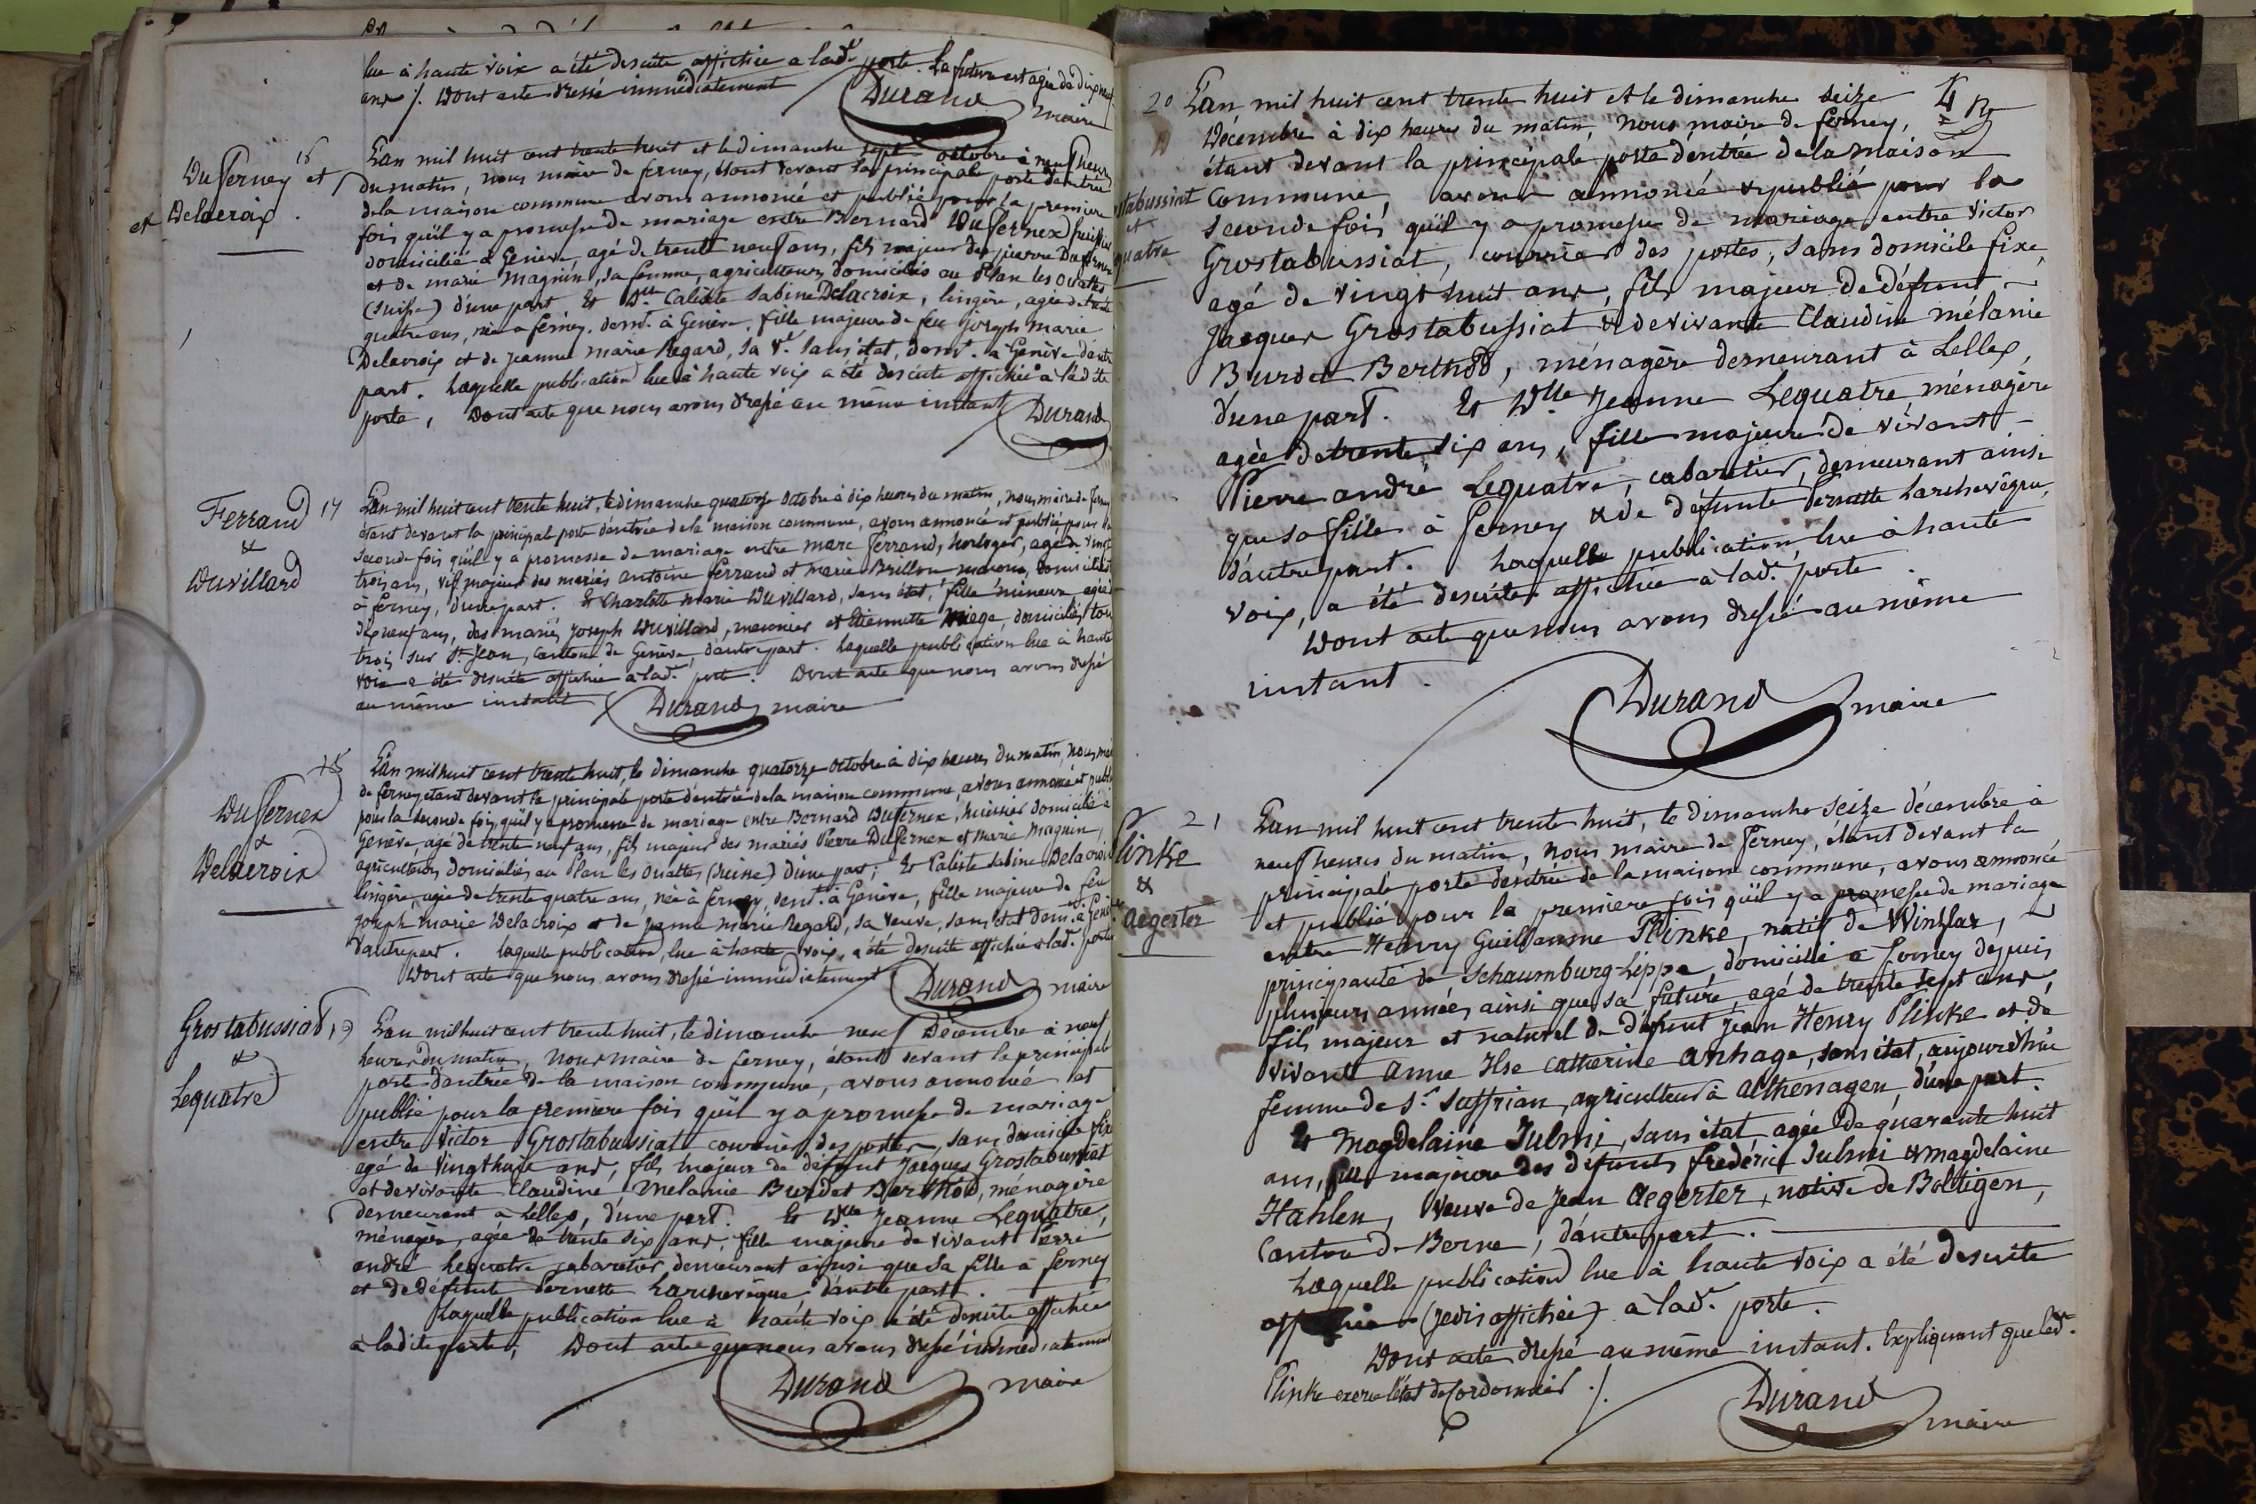 lue à haute voix a été desuite affichée a lade porte. La future est agée de dix neuf
ans ⁒. Dont acte dressé immédiatement
Durand maire
16
DuFerney et
et Delacroix.
L'an mil huit cent trente huit et le dimanche sept octobre à neuf heures
du matin, nous maire de ferney, étant devant la principale porte d'entrée
de la maison commune avons annoncé et publié pour la première
fois qu'il y a promesse de mariage entre Bernard DuFernex huissier
domicilié à Genève, agé de trente neuf ans, fils majeur de pierre Dufernex
et de marie Magnin, sa femme, agriculteurs domiciliés au Plan les Ouates
(Suisse) d'une part Et Dlle Caliste Sabine Delacroix, lingère, agée de trente
quatre ans, née a ferney. demt. à Genève. fille majeure de feu joseph marie
Delacroix et de jeanne marie Regard, sa ve. sans état, demt. a Genève d'autre
part. Laquelle publication lue à haute voix a été desuite affichée à ladite
porte, Dont acte que nous avons dressé au même instant
Durand
Ferrand 17
&
Duvillard
L'an mil huit cent trente huit, le dimanche quatorze octobre à dix heures du matin, nous maire de ferney
étant devant la principale porte d'entrée de la maison commune, avons annoncé et publié pour la
seconde fois qu'il y a promesse de mariage entre marc Ferrand, horloger, agé de vingt
trois ans, fils majeur des mariés antoine ferrand et marie Brillon maçons, domiciliés
à ferney, d'une part. Et Charlotte Marie Duvillard, sans état, fille mineure, agée de
dix neuf ans, des mariés Joseph Duvillard, meunier et Etiennette Miege, domiciliés tous
trois sur St. Jean, canton de Genève, d'autre part. Laquelle publication lue à haute
voix a été desuite affichée a lade. porte. Dont acte que nous avons dressé
au même instant
Durand maire
18
DuFernex
&
Delacroix
L'an mil huit cent trente huit, le dimanche quatorze octobre à dix heures du matin, nous maire
de ferney étant devant la principale porte d'entrée de la maison commune, avons annoncé et publié
pour la seconde fois, qu'il y a promesse de mariage entre Bernard Dufernex, huissier domicilié à
Genève, agé de trente neuf ans, fils majeur des mariés Pierre DuFernex et Marie Magnin,
agriculteurs domiciliés au Plan les Ouattes (Suisse) d'une part; Et Caliste Sabine Delacroix
lingère, agée de trente quatre ans, née à ferney, demt. à Genève, fille majeure de feu
joseph marie Delacroix et de jeanne marie Regard, sa veuve, sans état demt. à Genève
d'autre part. laquelle publication, lue à haute voix, a été desuite affichée a lade. porte
Dont acte que nous avons dressé immédiatement
Durand maire
Grostabussiat, 19
&
Lequatre
L'an mil huit cent trente huit, le dimanche neuf Décembre à neuf
heures du matin, nous maire de ferney, étant devant la principale
porte d'entrée de la maison commune, avons annoncé et
publié pour la première fois qu'il y a promesse de mariage
entre Victor Grostabussiat courrier des postes, sans domicile fixe
agé de vingt huit ans, fils majeur de défunt Jacques Grostabussiat
et de vivante Claudine Mélanie Burdet Berthod, ménagère
demeurant a Lellex, d'une part. Et Dlle Jeanne Lequatre,
ménagère, agée de trente six ans, fille majeure de vivant Pierre
andré Lequatre cabaretier, demeurant ainsi que sa fille à ferney
et de défunte Pernette Larchevêque d'autre part.
Laquelle publication lue à haute voix a été desuite affichée
à ladite porte, Dont acte que nous avons dressé immédiatement
Durand maire
4
20
tabussiat
et
quatre
L'an mil huit cent trente huit et le dimanche seize
Décembre à dix heures du matin, nous maire de ferney,
étant devant la principale porte d'entrée de la maison
Commune, avons annoncé & publié pour la
seconde fois, qu'il y a promesse de mariage entre Victor
Grostabussiat, courrier des postes, sans domicile fixe,
agé de vingt huit ans, fils majeur de défunt
Jacques Grostabussiat & de vivante Claudine mélanie
Burdet Berthod, ménagère demeurant à Lellex,
d'une part. Et Dlle Jeanne Lequatre ménagère
agée de trente six ans, fille majeure de vivant
Pierre andré Lequatre, cabaretier, demeurant ainsi
que sa fille à ferney & de défunte Pernette Larchevêque,
d'autre part. Laquelle publication, lue à haute
voix, a été desuite affichée a lade. porte.
Dont acte que nous avons dressé au même
instant.
Durand maire
21
linke
&
aegerter
L'an mil huit cent trente huit, le dimanche seize décembre à
neuf heures du matin, nous maire de ferney, étant devant la
principale porte d'entrée de la maison commune, avons annoncé
et publié pour la première fois qu'il y a promesse de mariage
entre Henry Guillaume Plinke, natif de Winzlar,
principauté de Schaumburg-Lippe, domicilié a ferney depuis
plusieurs années, ainsi que sa future, agé de trente sept ans,
fils majeur et naturel de défunt Jean Henry Plinke et de
vivante Anne Ilse Catherine Anhage, sans état, aujourd'hui
femme de Sr. Suffrian, agriculteur à Althenagen, d'une part.
Et Magdelaine Julmi, sans état agée de quarante huit
ans, fille majeure des défunts frédéric Julmi & magdelaine
Hahlen, Veuve de Jean Aegerter, native de Boltigen,
Canton de Berne, d'autre part.
Laquelle publication lue à haute voix a été desuite
(je dis affichée) a lade. porte.
Dont acte dressé au même instant. Expliquant que led.
Plinke exerce l'état de Cordonnier ⁒.
Durand maire